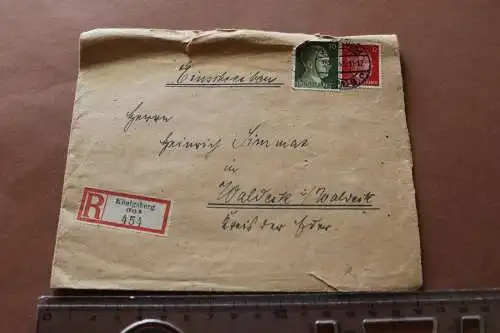 Einschreiben
Herrn
Heinrich
in
Waldeck i/Waldeck
Kreis der Eder.
R
Königsberg
(Pr) 8
451